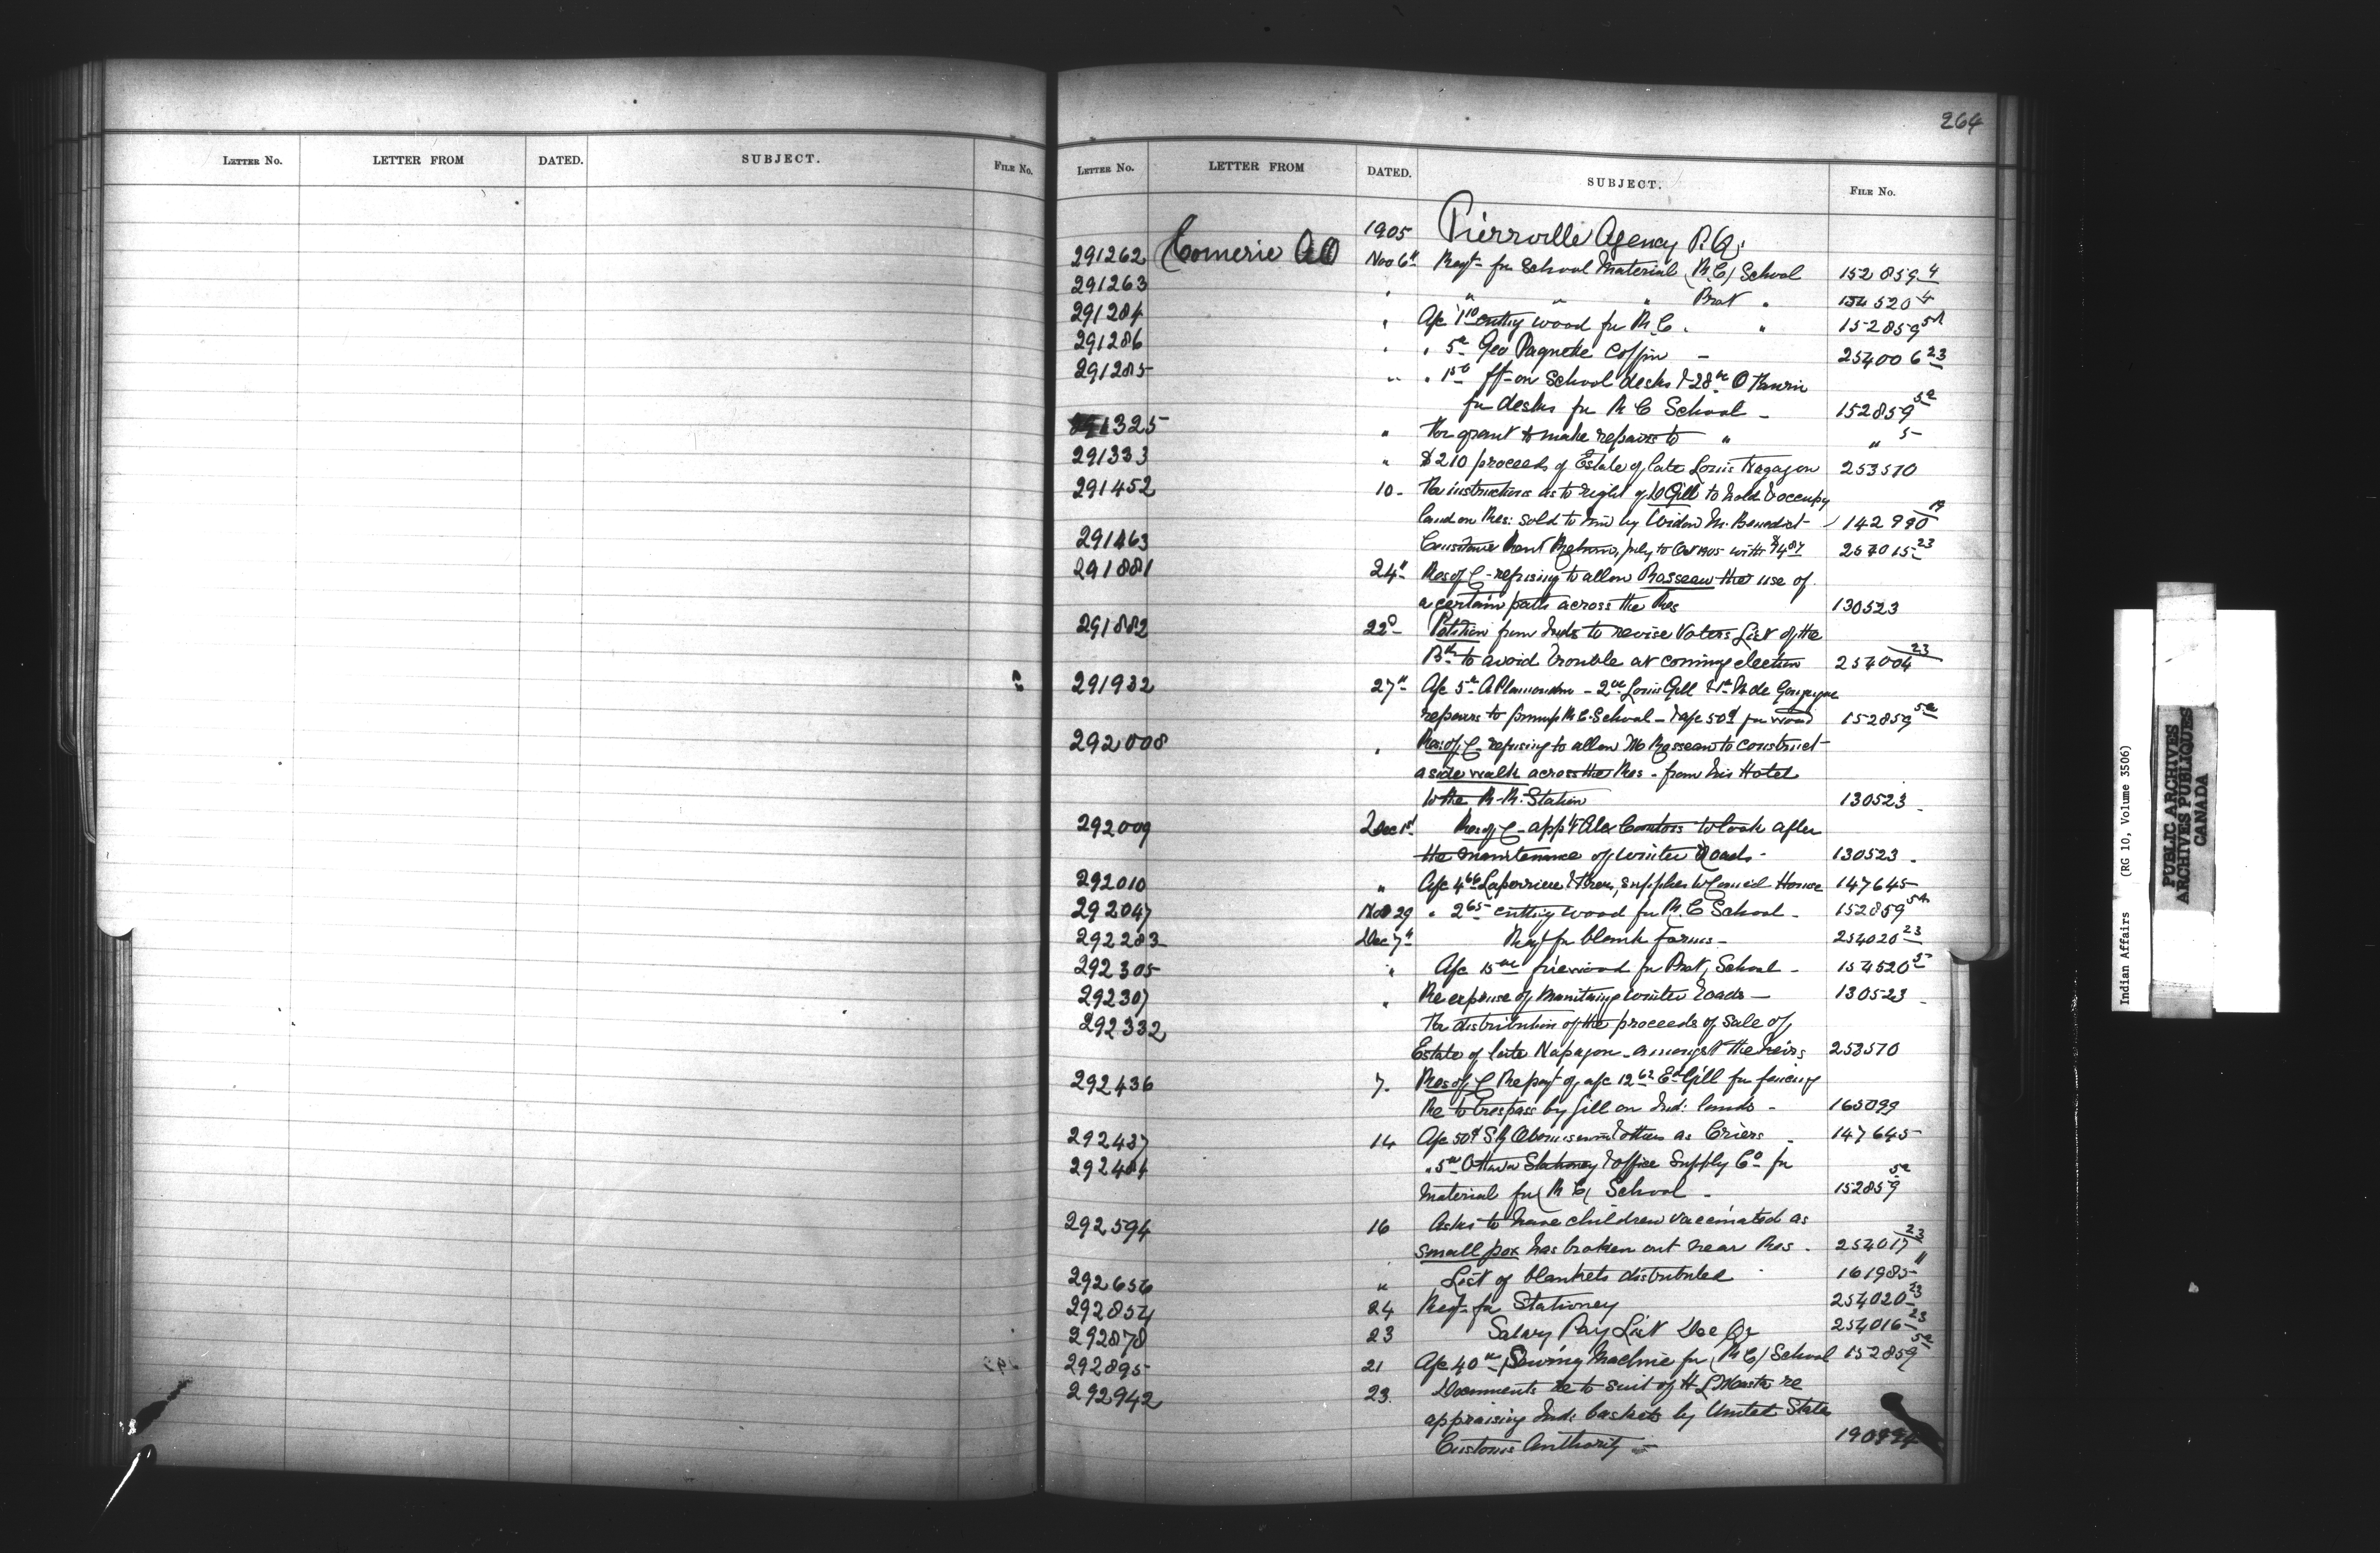 264
LETTER NO. LETTER FROM DATED. SUBJECT. FILE NO.
LETTER NO. LETTER FROM DATED. SUBJECT. FILE NO.
1905 Pierrville Agency P.Q.
291262 Comerie A O Nov 6th Reqt for School Material (R.C.) School 152859 4
291263 " " " " Prot " 154520 4
291284 " A/c 1 10 cutting wood for R.C. " 152859 5a
291286 " " 5 Geo Paquette Coffin - 254006 23
291285 " " 1 50 frt on School desks & 28
for desks for R C School - 152859 5a
291325 " for grant to make repairs to " " 5
291333 " $210 proceeds of Estate of late Louis 253570
291452 10 - for instructions as to right of Gill to hold & occupy
land on Res: sold to him by Widow M. Benedict - 142990 19
291463 Rent Returns, July to Oct 1905 with 257015 23
291881 24th Res of C - refusing to allow Rasseau the use of
a certain path across the Res 130523
291882 22d Petition from Inds to revise Voters List of the
Bd to avoid trouble at coming election 254004 23
291932 27th A/c 5 A Plamondon - 2 Louis Gill & 1 N de Gonzague
repairs to pump R.C. School - & a/c 50¢ for wood 152859 5a
292008 " Res: of C - refusing to allow M Rasseau to construct
a side walk across the Res - from his Hotel
to the R.R. Station 130523
292009 Dec 1st Res of C - app'g Alex to look after
the maintenance of winter Roads - 130523
292010 " A/c 4 66 Laperriere & Frere, supplies to Council House 147645
292047 Nov 29 " 2 65 cutting wood for R.C School - 152859 5a
292283 Dec 7th Reqt for blank forms - 254020 23
292305 " A/c 15 firewood for Prot, School - 154520 5
292307 " Re expense of winter roads - 130523
292332 for distribution of the proceeds of sale of
Estate of late - amongst the heirs 253570
292436 7 - Res of C Re payt of a/c 12 62 Ed Gill for fencing
Re to trespass by Gill on Ind: lands - 165099
292437 14 A/c 50¢ & others as Criers - 147645
" 5 Ottawa Stationery & Office Supply Co for
material for (R C) School - 152859 5a
292594 16 Asks to have children vaccinated as
small pox has broken out near Res - 254017 23
292656 " List of blankets distributed 161985 11
292854 24 Reqt for Stationery 254020 23
292878 23 Salary Pay List Dec Qr 254016 23
292895 21 A/c 40 Sewing Machine for (R C) School 152859 5a
292942 23 Documents re to suit of H L Masta re
appraising Ind: baskets by United States
Customs Authority -
Indian Affairs (RG 10, Volume 3506)
PUBLIC ARCHIVES
ARCHIVES PUBLIQUES
CANADA